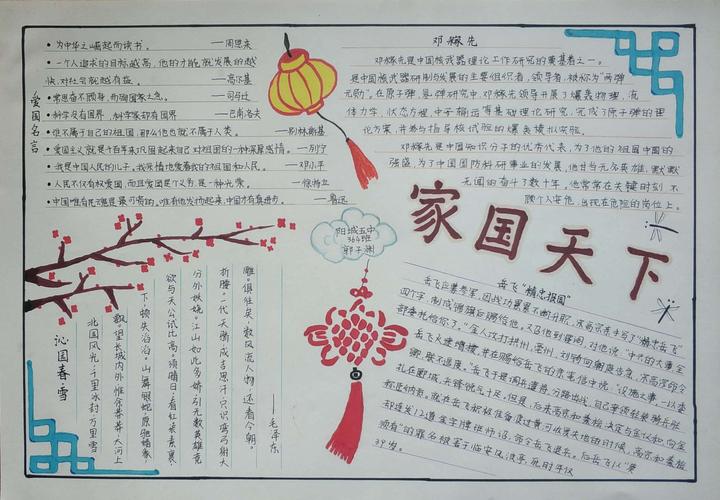 爱国名言
• 为中华之崛起而读书。 ——周恩来
• 一个人追求的目标越高，他的才能就发展的越
快，对社会就越有益。 ——高尔基
• 常思奋不顾身，而殉国家之急。 ——司马迁
• 科学没有国界，科学家却有国界 ——巴甫洛夫
• 谁不属于自己的祖国，那么他也就不属于人类。 ——别林斯基
• 爱国主义就是千百年来巩固起来的对自己祖国的一种深厚感情。 ——列宁
• 我是中国人民的儿子。我深情地爱着我的祖国和人民。 ——邓小平
• 人民不仅有权爱国，而且爱国是个义务，是一种光荣。 ——徐特立
• 中国唯有民魂是最可宝贵的，唯有他发扬起来，中国才有真进步。 ——鲁迅
邓稼先
邓稼先是中国核武器理论工作研究的奠基者之一。
是中国核武器研制与发展的主要组织者，领导者，被称为“两弹
元勋”。在原子弹，氢弹研究中，邓稼先领导开展了爆轰物理，流
体力学，状态方程，中子输运等基础理论研究，完成了原子弹的理
论方案，并参与指导核试验的爆轰模拟实验。
邓稼先是中国知识分子的优秀代表，为了他的祖国中国的
强盛，为了中国国防科研事业的发展，他甘当无名英雄，默默
无闻的奋斗了数十年，他常常在关键时刻，不
顾个人安危，出现在危险的岗位上。
家国天下
阳城五中
364班
郭子渊
沁园春·雪
北国风光，千里冰封，万里雪
飘。望长城内外，惟余莽莽，大河上
下，顿失滔滔。山舞银蛇，原驰蜡象，
欲与天公试比高。须晴日，看红装素裹，
分外妖娆。江山如此多娇，引无数英雄竞
折腰。一代天骄，成吉思汗，只识弯弓射大
雕。俱往矣，数风流人物，还看今朝。
——毛泽东
岳飞“精忠报国”
岳飞应募参军，因战功累累不断升职，宋高宗亲手写了“精忠岳飞”
四个字，制成锦旗后赐给他。又召他到寝阁，对他说：“中兴的大事，全
部委托给你了。”金人攻打拱州、亳州，刘锜向朝廷告急，宋高宗命令
岳飞火速增援，并在赐给岳飞的亲笔信中说：
“
39岁。